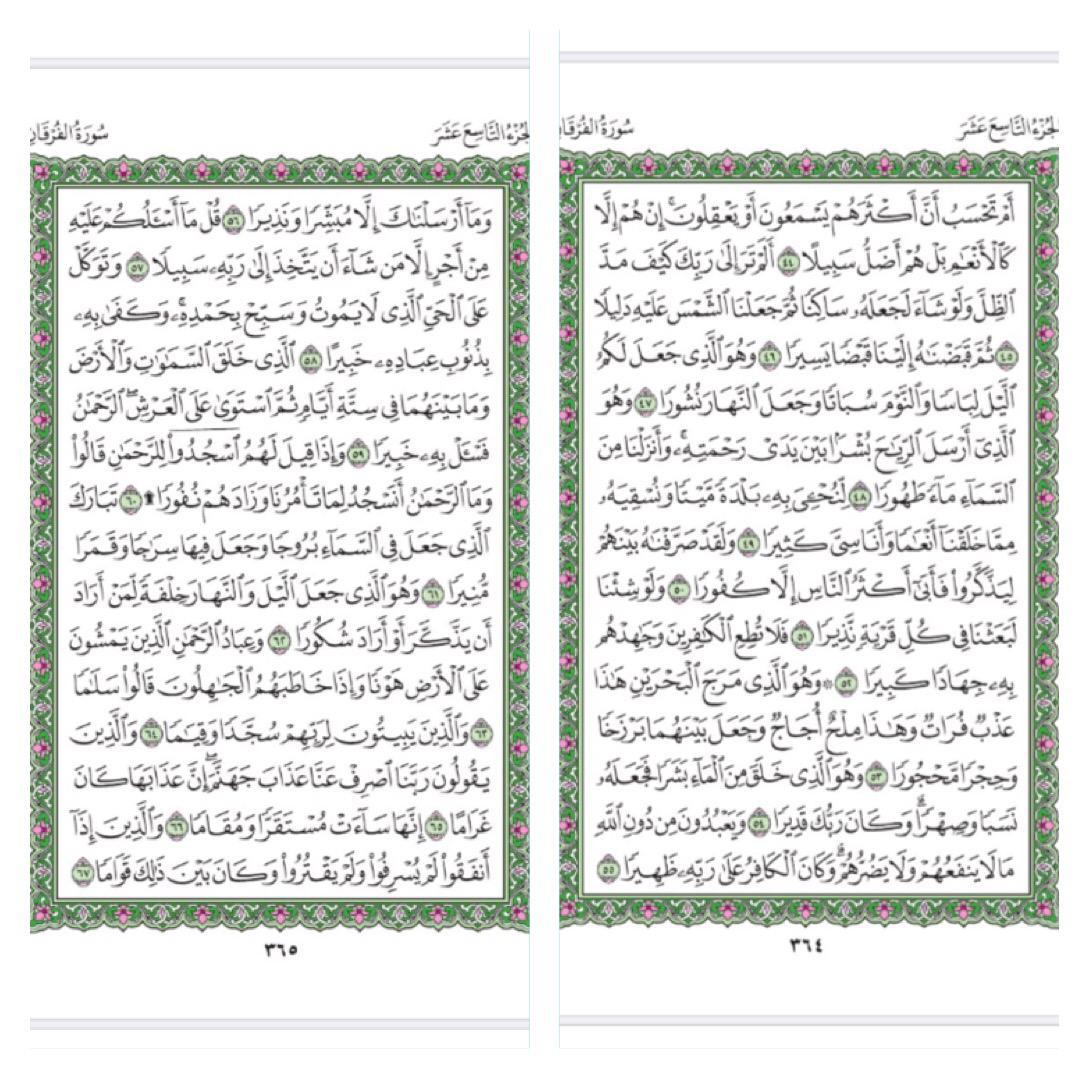 الجزء التاسع عشر
سورة الفرقان
أَمْ تَحْسَبُ أَنَّ أَكْثَرَهُمْ يَسْمَعُونَ أَوْ يَعْقِلُونَ ۚ إِنْ هُمْ إِلَّا
كَالْأَنْعَٰمِ بَلْ هُمْ أَضَلُّ سَبِيلًا ٤٤ أَلَمْ تَرَ إِلَىٰ رَبِّكَ كَيْفَ مَدَّ
ٱلظِّلَّ وَلَوْ شَآءَ لَجَعَلَهُۥ سَاكِنًا ثُمَّ جَعَلْنَا ٱلشَّمْسَ عَلَيْهِ دَلِيلًا
٤٥ ثُمَّ قَبَضْنَٰهُ إِلَيْنَا قَبْضًا يَسِيرًا ٤٦ وَهُوَ ٱلَّذِى جَعَلَ لَكُمُ
ٱلَّيْلَ لِبَاسًا وَٱلنَّوْمَ سُبَاتًا وَجَعَلَ ٱلنَّهَارَ نُشُورًا ٤٧ وَهُوَ
ٱلَّذِىٓ أَرْسَلَ ٱلرِّيَٰحَ بُشْرًۢا بَيْنَ يَدَىْ رَحْمَتِهِۦ ۚ وَأَنزَلْنَا مِنَ
ٱلسَّمَآءِ مَآءً طَهُورًا ٤٨ لِّنُحْـِۧىَ بِهِۦ بَلْدَةً مَّيْتًا وَنُسْقِيَهُۥ
مِمَّا خَلَقْنَآ أَنْعَٰمًا وَأَنَاسِىَّ كَثِيرًا ٤٩ وَلَقَدْ صَرَّفْنَٰهُ بَيْنَهُمْ
لِيَذَّكَّرُوا۟ فَأَبَىٰٓ أَكْثَرُ ٱلنَّاسِ إِلَّا كُفُورًا ٥٠ وَلَوْ شِئْنَا
لَبَعَثْنَا فِى كُلِّ قَرْيَةٍ نَّذِيرًا ٥١ فَلَا تُطِعِ ٱلْكَٰفِرِينَ وَجَٰهِدْهُم
بِهِۦ جِهَادًا كَبِيرًا ٥٢ ۞ وَهُوَ ٱلَّذِى مَرَجَ ٱلْبَحْرَيْنِ هَٰذَا
عَذْبٌ فُرَاتٌ وَهَٰذَا مِلْحٌ أُجَاجٌ وَجَعَلَ بَيْنَهُمَا بَرْزَخًا
وَحِجْرًا مَّحْجُورًا ٥٣ وَهُوَ ٱلَّذِى خَلَقَ مِنَ ٱلْمَآءِ بَشَرًا فَجَعَلَهُۥ
نَسَبًا وَصِهْرًا ۗ وَكَانَ رَبُّكَ قَدِيرًا ٥٤ وَيَعْبُدُونَ مِن دُونِ ٱللَّهِ
مَا لَا يَنفَعُهُمْ وَلَا يَضُرُّهُمْ ۗ وَكَانَ ٱلْكَافِرُ عَلَىٰ رَبِّهِۦ ظَهِيرًا ٥٥
٣٦٤
الجزء التاسع عشر
سورة الفرقان
وَمَآ أَرْسَلْنَٰكَ إِلَّا مُبَشِّرًا وَنَذِيرًا ٥٦ قُلْ مَآ أَسْـَٔلُكُمْ عَلَيْهِ
مِنْ أَجْرٍ إِلَّا مَن شَآءَ أَن يَتَّخِذَ إِلَىٰ رَبِّهِۦ سَبِيلًا ٥٧ وَتَوَكَّلْ
عَلَى ٱلْحَىِّ ٱلَّذِى لَا يَمُوتُ وَسَبِّحْ بِحَمْدِهِۦ ۚ وَكَفَىٰ بِهِۦ
بِذُنُوبِ عِبَادِهِۦ خَبِيرًا ٥٨ ٱلَّذِى خَلَقَ ٱلسَّمَٰوَٰتِ وَٱلْأَرْضَ
وَمَا بَيْنَهُمَا فِى سِتَّةِ أَيَّامٍ ثُمَّ ٱسْتَوَىٰ عَلَى ٱلْعَرْشِ ۚ ٱلرَّحْمَٰنُ
فَسْـَٔلْ بِهِۦ خَبِيرًا ٥٩ وَإِذَا قِيلَ لَهُمُ ٱسْجُدُوا۟ لِلرَّحْمَٰنِ قَالُوا۟
وَمَا ٱلرَّحْمَٰنُ أَنَسْجُدُ لِمَا تَأْمُرُنَا وَزَادَهُمْ نُفُورًا ۩ ٦٠ تَبَارَكَ
ٱلَّذِى جَعَلَ فِى ٱلسَّمَآءِ بُرُوجًا وَجَعَلَ فِيهَا سِرَٰجًا وَقَمَرًا
مُّنِيرًا ٦١ وَهُوَ ٱلَّذِى جَعَلَ ٱلَّيْلَ وَٱلنَّهَارَ خِلْفَةً لِّمَنْ أَرَادَ
أَن يَذَّكَّرَ أَوْ أَرَادَ شُكُورًا ٦٢ وَعِبَادُ ٱلرَّحْمَٰنِ ٱلَّذِينَ يَمْشُونَ
عَلَى ٱلْأَرْضِ هَوْنًا وَإِذَا خَاطَبَهُمُ ٱلْجَٰهِلُونَ قَالُوا۟ سَلَٰمًا
٦٣ وَٱلَّذِينَ يَبِيتُونَ لِرَبِّهِمْ سُجَّدًا وَقِيَٰمًا ٦٤ وَٱلَّذِينَ
يَقُولُونَ رَبَّنَا ٱصْرِفْ عَنَّا عَذَابَ جَهَنَّمَ ۖ إِنَّ عَذَابَهَا كَانَ
غَرَامًا ٦٥ إِنَّهَا سَآءَتْ مُسْتَقَرًّا وَمُقَامًا ٦٦ وَٱلَّذِينَ إِذَآ
أَنفَقُوا۟ لَمْ يُسْرِفُوا۟ وَلَمْ يَقْتُرُوا۟ وَكَانَ بَيْنَ ذَٰلِكَ قَوَامًا ٦٧
٣٦٥